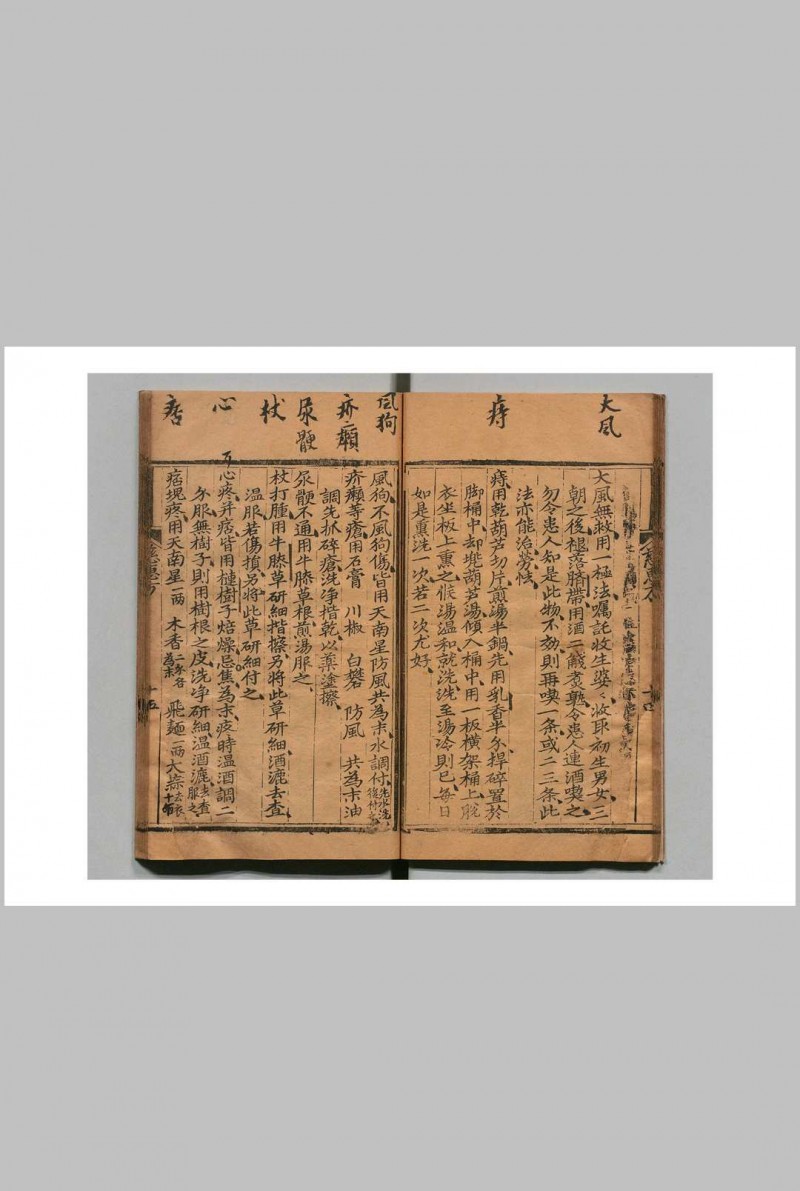 大風
痔
大風無救用一極法囑託收生婆々收取初生男女三
朝之後褪落臍帶用酒二鍼煮熟令患人連酒喫之
勿令患人知是此物不効則再喫一条或二三条此
法亦能治勞怯
痔用乾葫芦勿片煎湯半鍋先用乳香半分捍碎置於
脚桶中却拋葫芦湯傾入桶中用一板横架桶上脫
衣坐板上熏之候湯溫和就洗洗至湯冷則已每日
如是熏洗一次若二次尤好
十四
風狗
疥癩
尿骾
杖
心
痞
風狗不風狗傷皆用天南星防風共為末水調付先水洗後付之
疥癩等瘡用石膏 川椒 白礬 防風 共為末油
調先抓碎瘡洗净揩乾以藥塗擦
尿骾不通用牛膝草根煎湯服之
杖打腫用牛膝草研細揩擦另將此草研細酒漉去查
溫服若傷損另將此草研細付之
心疼并痞皆用槤樹子焙燥忌焦為末疼時溫酒調二
分服無樹子則用樹根之皮洗净研細溫酒漉去查服之
痞塊疼用天南星一兩 木香二分各為末 飛麵一兩 大蒜去衣十個
十五